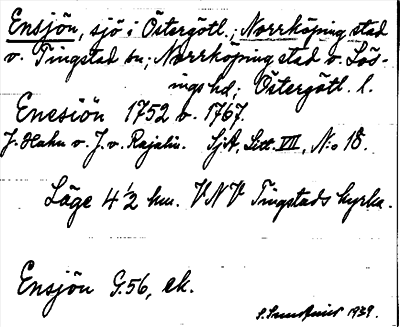 Ensjön, sjö i Östergötl.; Norrköping stad
o. Tingstad sn; Norrköping stad o. Lös-
ings hd; Östergötl. l.
Enesiön 1752 o. 1767.
J. Hahn o. J. v. Rajalin. SjA, Litt. VII, N:o 18.
Läge 4 1/2 km. VNV Tingstads kyrka.
Ensjön G.56, ek.
1939.